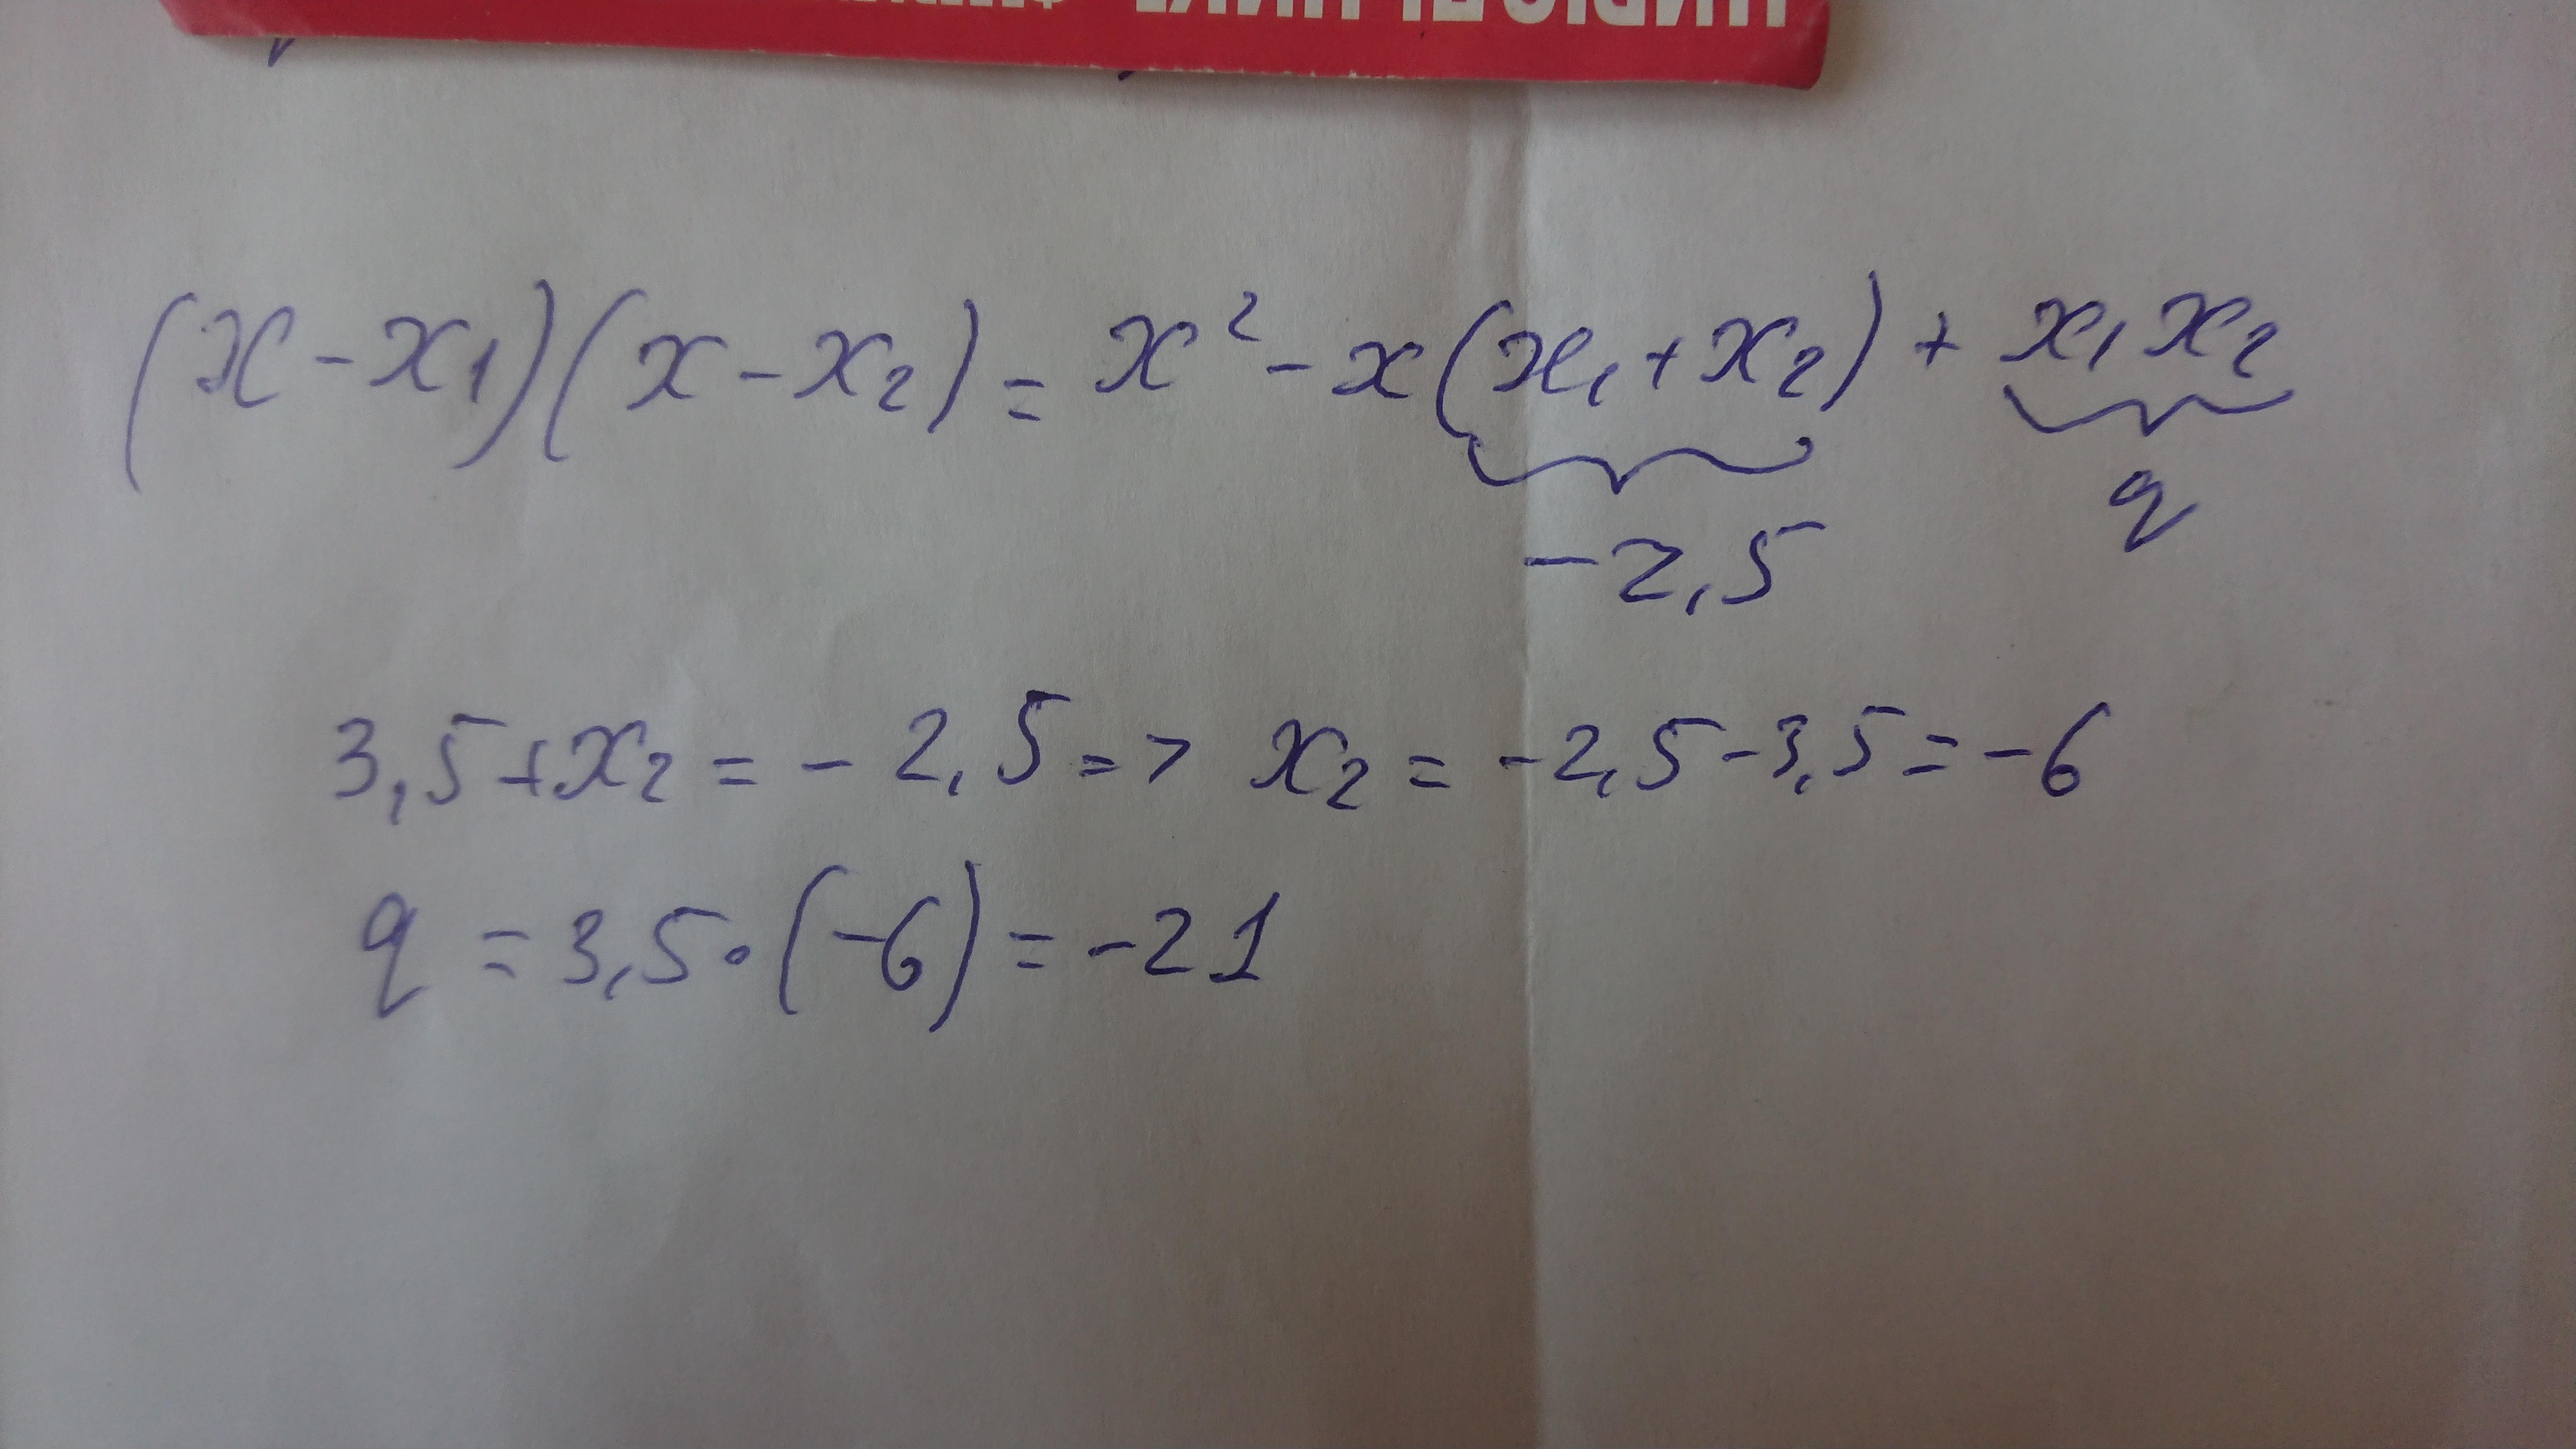 (x - x₁)(x - x₂) = x² - x(x₁ + x₂) + x₁x₂
-2,5 q
3,5 + x₂ = -2,5 => x₂ = -2,5 - 3,5 = -6
q = 3,5 · (-6) = -21